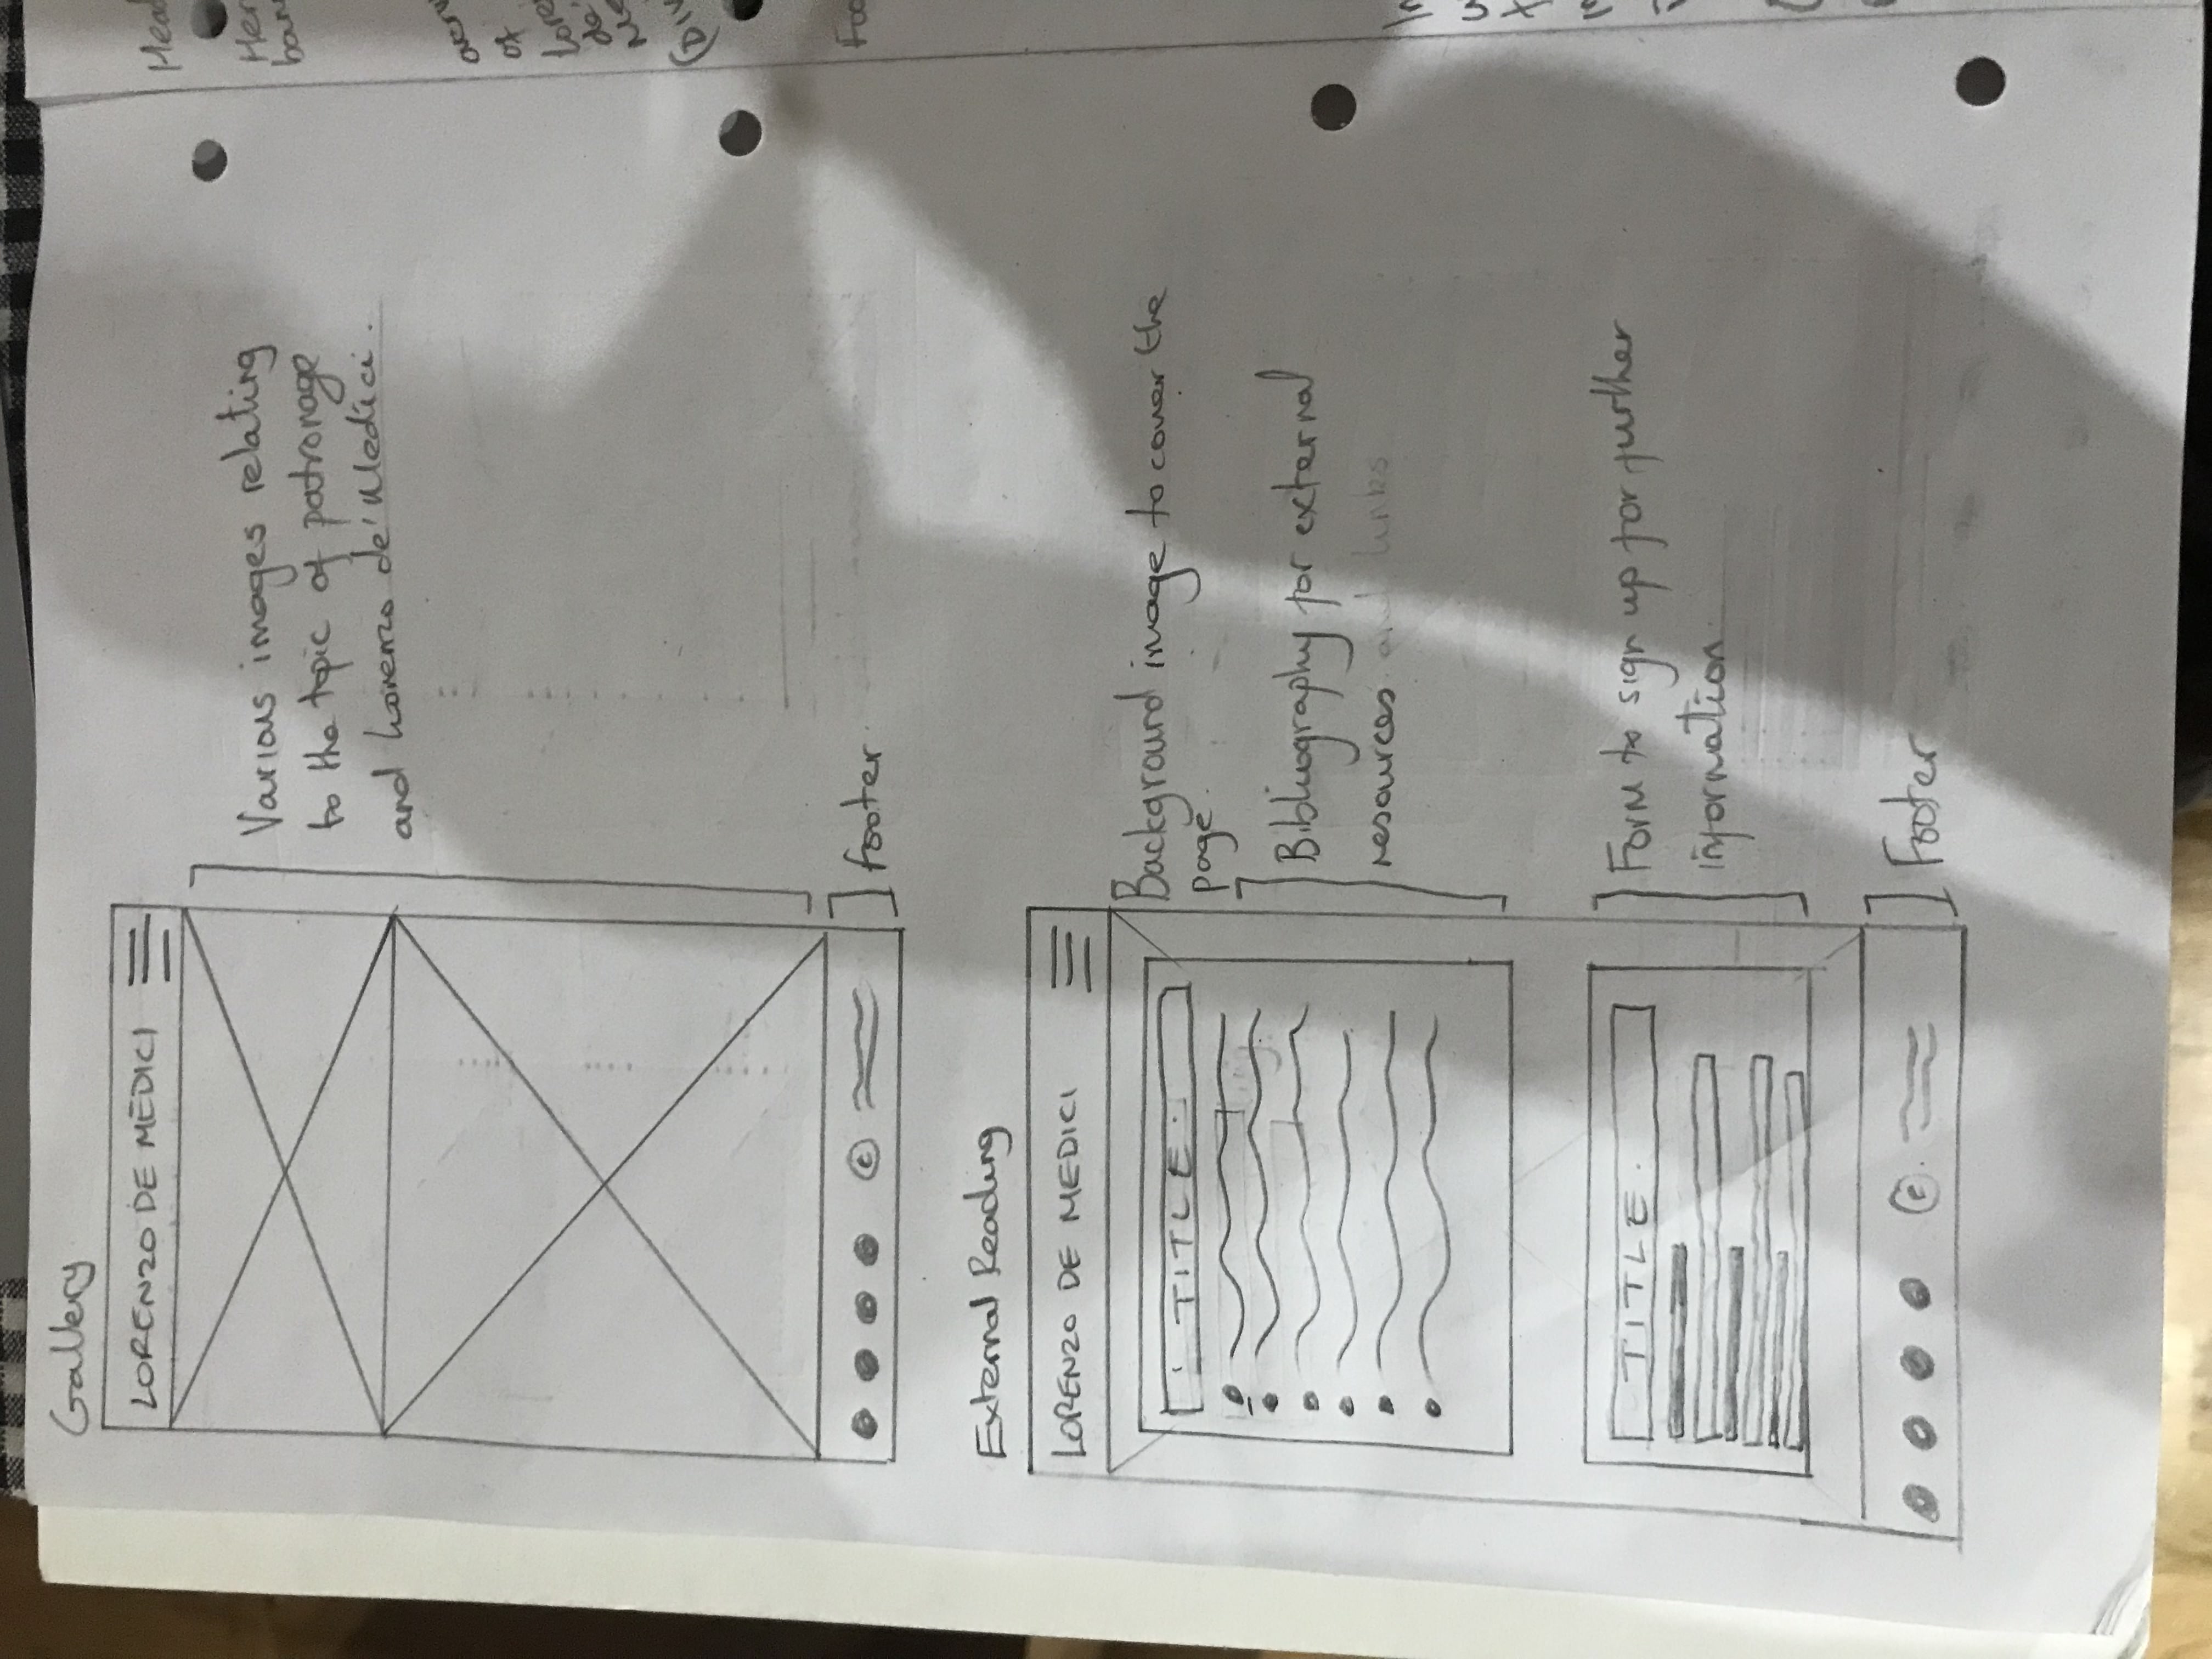 Gallery
LORENZO DE MEDICI
Various images relating
to the topic of patronage
and Lorenzo de' Medici.
©
footer
External Reading
LORENZO DE MEDICI
Background image to cover the
page.
TITLE
Bibliography for external
resources and links
TITLE.
Form to sign up for further
information
©
Footer
Head
Her
ban
of
Lore
de'
Me
(DIV
Foo